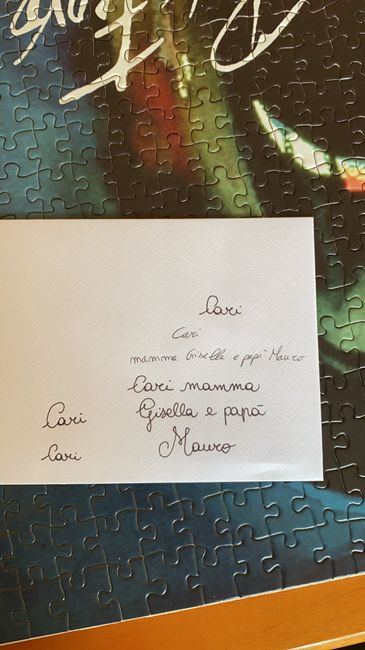 Cari
Cari
mamma Gisella e papà Mauro
Cari mamma
Gisella e papà
Cari
Mauro
Cari